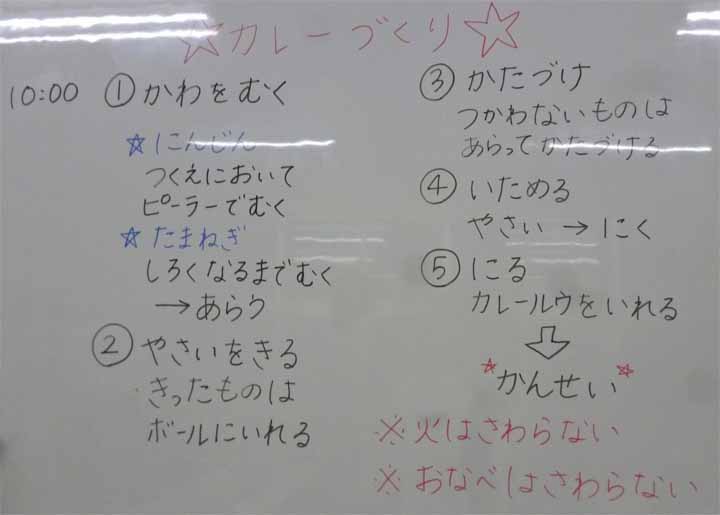 ☆カレーづくり☆
10:00 ①かわをむく
☆にんじん
つくえにおいて
ピーラーでむく
☆たまねぎ
しろくなるまでむく
→あらう
②やさいをきる
きったものは
ボールにいれる
③かたづけ
つかわないものは
あらってかたづける
④いためる
やさい→にく
⑤にる
カレールウをいれる
⇩
☆かんせい☆
※火はさわらない
※おなべはさわらない